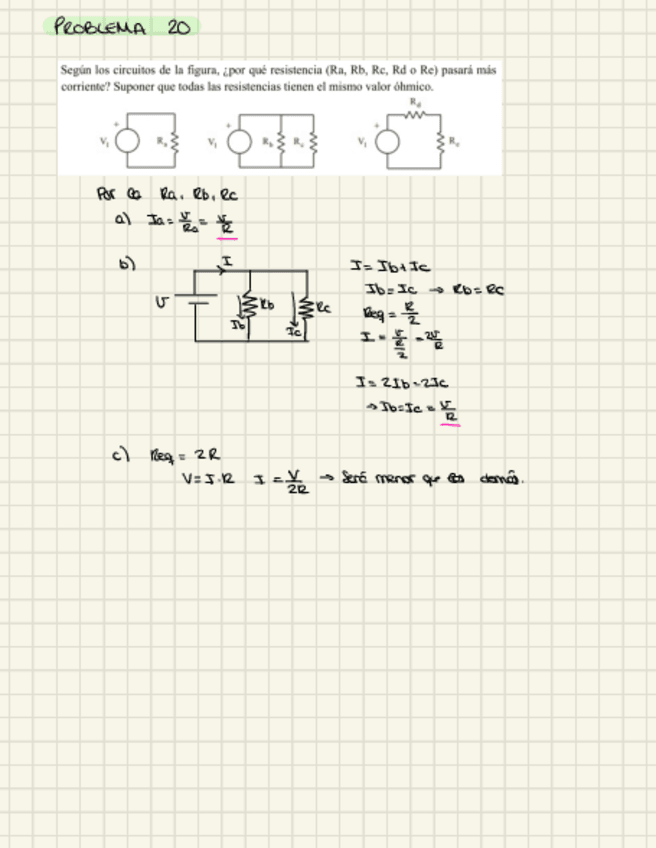 PROBLEMA 20
Según los circuitos de la figura, ¿por qué resistencia (Ra, Rb, Rc, Rd o Re) pasará más
corriente? Suponer que todas las resistencias tienen el mismo valor óhmico.
R_d
+ + +
V_i R_a V_i R_b R_c V_i R_e
Por las Ra, Rb, Rc
a) Ia = V/Ra = V/R
b) I
V Rb Rc
Ib Ic
I = Ib + Ic
Ib = Ic → Rb = Rc
Req = R/2
I = V/(R/2) = 2V/R
I = 2Ib = 2Ic
→ Ib = Ic = V/R
c) Req = 2R
V = I·R I = V/2R → Será menor que las demás.